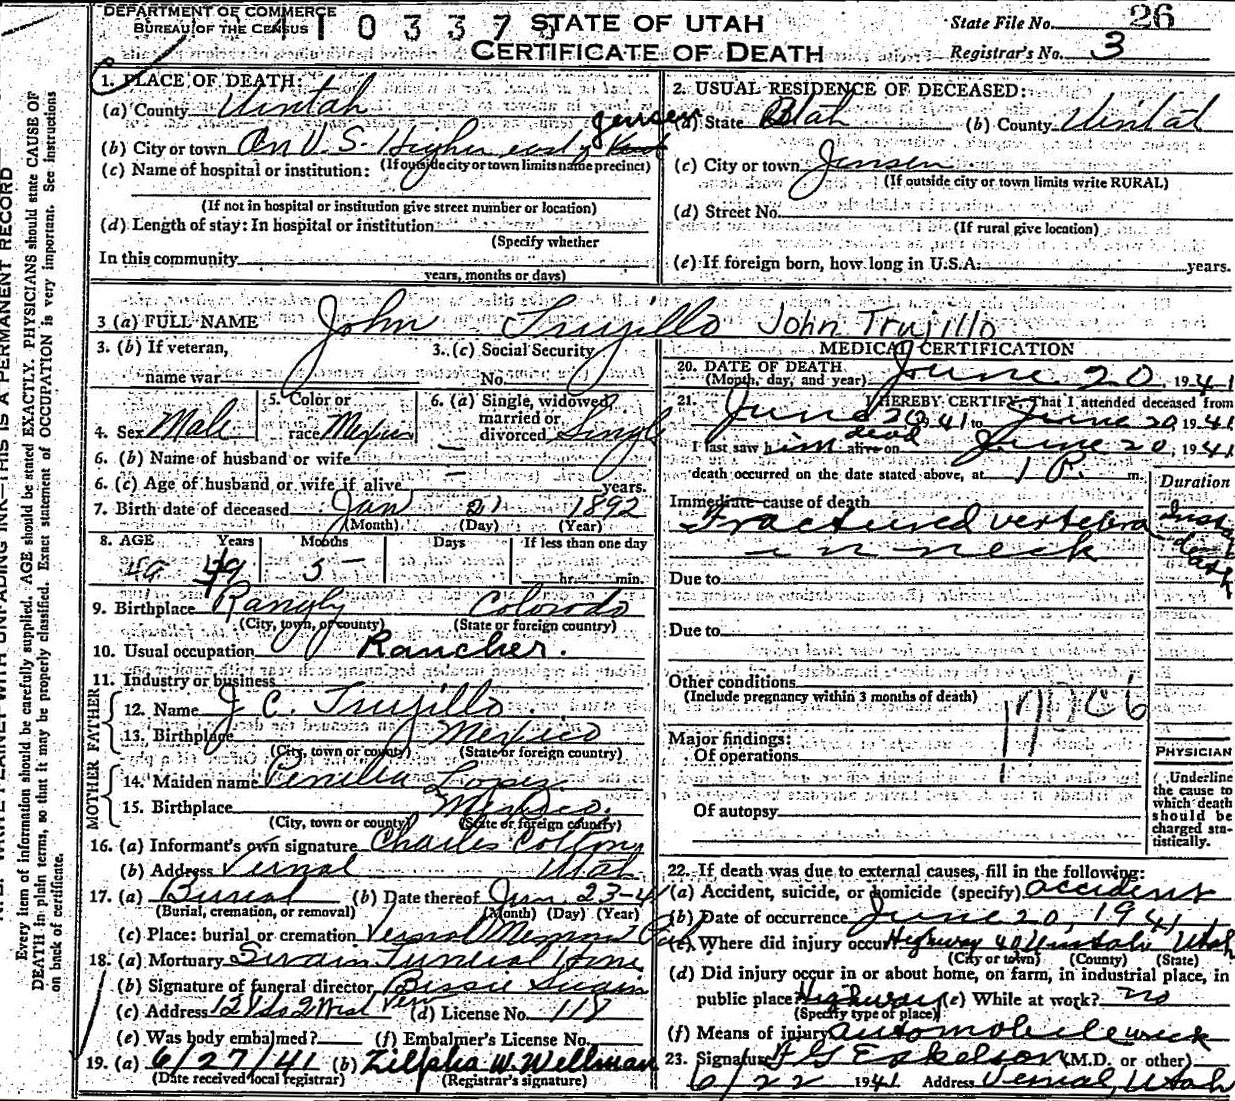 DEPARTMENT OF COMMERCE
BUREAU OF THE CENSUS
4 1 0 3 3 7
STATE OF UTAH
CERTIFICATE OF DEATH
State File No. 26
Registrar's No. 3
1. PLACE OF DEATH:
(a) County Uintah
Jensen
(b) City or town On U.S. Highway
(If outside city or town limits name precinct)
(c) Name of hospital or institution:
(If not in hospital or institution give street number or location)
(d) Length of stay: In hospital or institution
(Specify whether
In this community
years, months or days)
2. USUAL RESIDENCE OF DECEASED:
(a) State Utah (b) County Uintah
(c) City or town Jensen
(If outside city or town limits write RURAL)
(d) Street No.
(If rural give location)
(e) If foreign born, how long in U.S.A. years.
3 (a) FULL NAME John Trujillo John Trujillo
3. (b) If veteran,
name war
3. (c) Social Security
No.
4. Sex Male
5. Color or
race
6. (a) Single, widowed,
married or
divorced Single
6. (b) Name of husband or wife —
6. (c) Age of husband or wife if alive — years.
7. Birth date of deceased Jan 21 1892
(Month) (Day) (Year)
8. AGE Years Months Days If less than one day
49 49 5 — hr. min.
9. Birthplace Rangly Colorado
(City, town, or county) (State or foreign country)
10. Usual occupation Rancher.
11. Industry or business
FATHER
12. Name J C. Trujillo
13. Birthplace Mexico
(City, town or county) (State or foreign country)
MOTHER
14. Maiden name Lopez
15. Birthplace Mexico.
(City, town or county) (State or foreign country)
16. (a) Informant's own signature Charles
(b) Address Vernal Utah
17. (a) Burial (b) Date thereof Jun. 23-41
(Burial, cremation, or removal) (Month) (Day) (Year)
(c) Place: burial or cremation Vernal
18. (a) Mortuary Swain Funeral Home
(b) Signature of funeral director Bessie Swain
(c) Address Vern (d) License No. 118
(e) Was body embalmed? (f) Embalmer's License No.
19. (a) 6/27/41 (b) Zilpha W. Wellman
(Date received local registrar) (Registrar's signature)
MEDICAL CERTIFICATION
20. DATE OF DEATH
(Month, day, and year) June 20, 1941
21. I HEREBY CERTIFY, That I attended deceased from
June 20, 41 to June 20, 1941
I last saw him dead alive on June 20, 1941
death occurred on the date stated above, at 1 P. m.
Duration
Immediate cause of death
Fractured vertebra
in neck
Instant
death
Due to
Due to
Other conditions
(Include pregnancy within 3 months of death)
Major findings:
Of operations
Of autopsy
PHYSICIAN
Underline
the cause to
which death
should be
charged sta-
tistically.
22. If death was due to external causes, fill in the following:
(a) Accident, suicide, or homicide (specify) accident
(b) Date of occurrence June 20, 1941
(c) Where did injury occur Highway 40 Uintah Utah
(City or town) (County) (State)
(d) Did injury occur in or about home, on farm, in industrial place, in
public place? Highway (e) While at work? no
(Specify type of place)
(f) Means of injury automobile wreck
23. Signature F G Eskelson (M.D. or other)
6/22 1941 Address Vernal, Utah
Every item of information should be carefully supplied. AGE should be stated EXACTLY. PHYSICIANS should state CAUSE OF
DEATH in plain terms, so that it may be properly classified. Exact statement of OCCUPATION is very important. See instructions
on back of certificate.